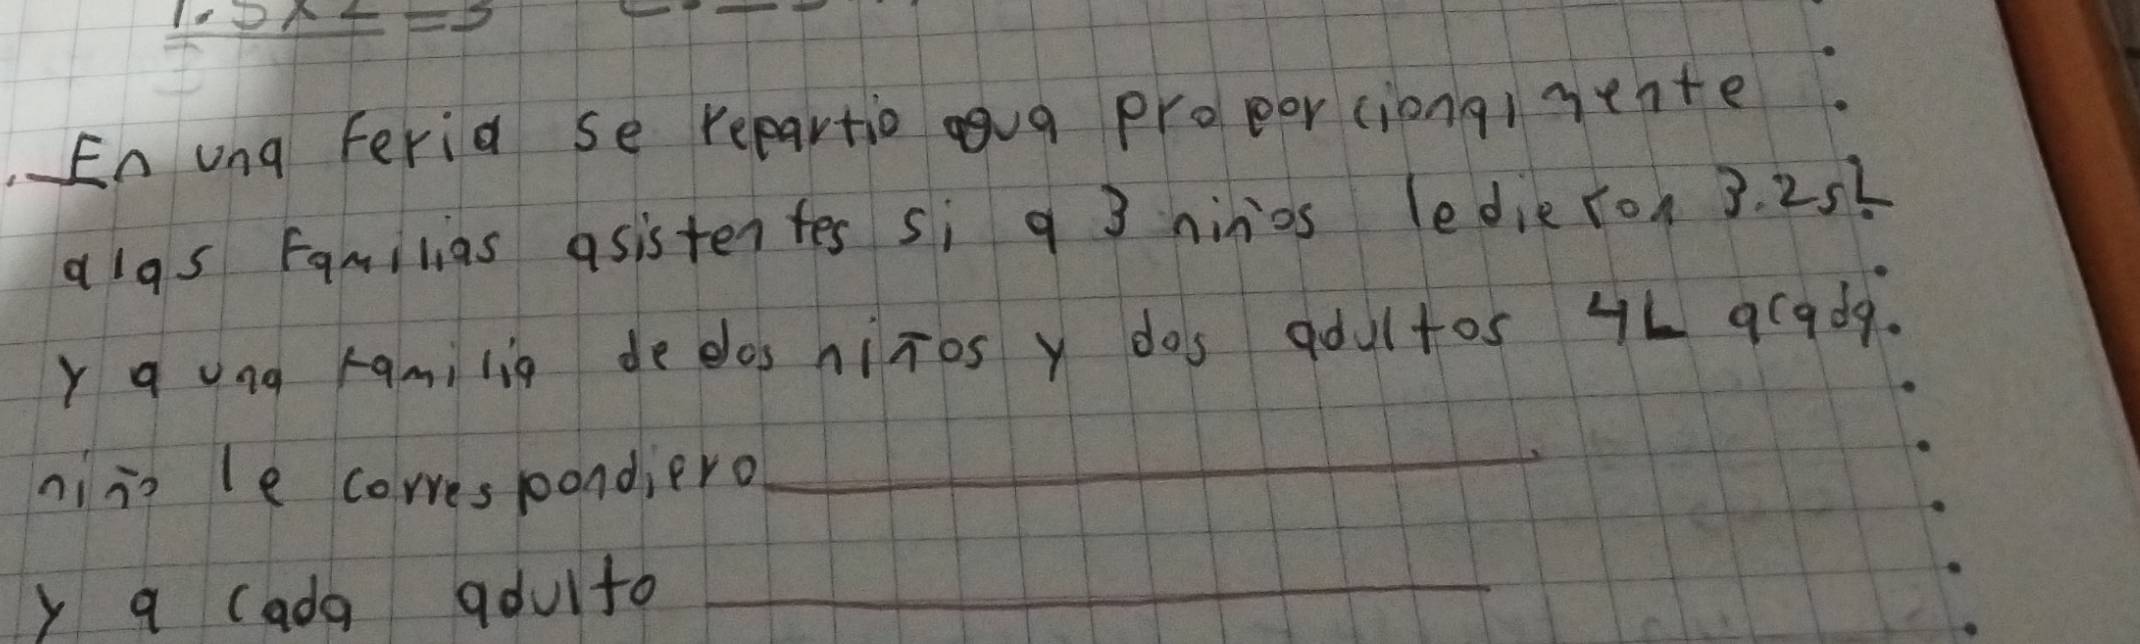 1.5x2=3
. En una Feria se repartio agua proporcionalmente
a las Familias asistentes si a 3 niños le dieron 3.25L
y a una Familia de dos niños y dos adultos 4L a cada.
niño le correspondiero
y a cada adulto